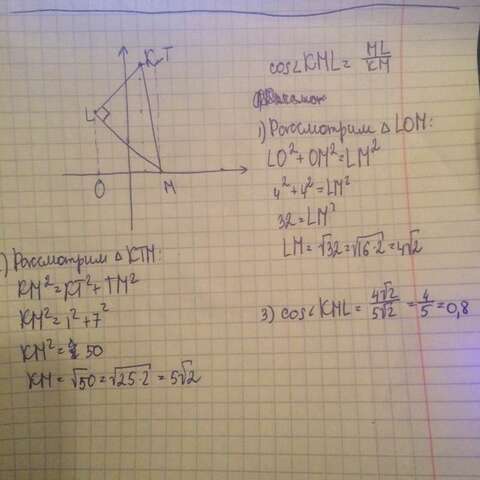 K T
L
O
M
cos∠KML = ML/KM
1) Рассмотрим △LOM:
LO² + OM² = LM²
4² + 4² = LM²
32 = LM²
LM = √32 = √16·2 = 4√2
) Рассмотрим △KTM:
KM² = KT² + TM²
KM² = 1² + 7²
KM² = 50
KM = √50 = √25·2 = 5√2
3) cos∠KML = 4√2/5√2 = 4/5 = 0,8